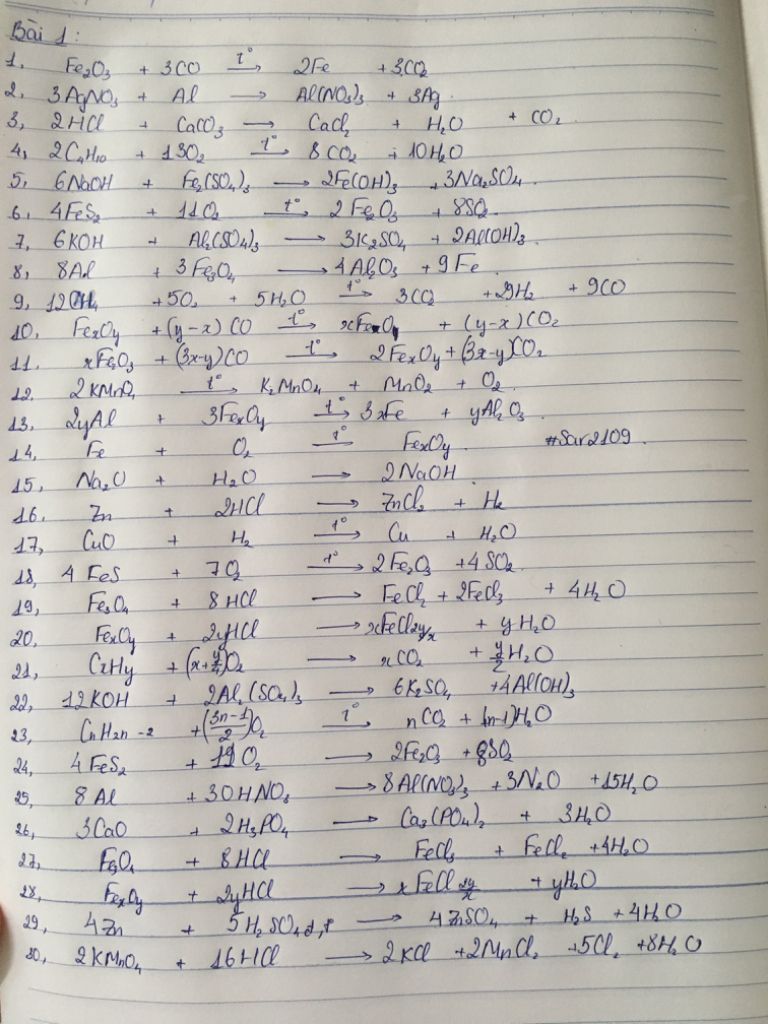 Bài 1:
1, Fe2O3 + 3CO t°→ 2Fe + 3CO2
2, 3AgNO3 + Al → Al(NO3)3 + 3Ag.
3, 2HCl + CaCO3 → CaCl2 + H2O + CO2
4, 2C4H10 + 13O2 t°→ 8CO2 + 10H2O
5, 6NaOH + Fe2(SO4)3 → 2Fe(OH)3 + 3Na2SO4.
6, 4FeS2 + 11O2 t°→ 2Fe2O3 + 8SO2
7, 6KOH + Al2(SO4)3 → 3K2SO4 + 2Al(OH)3.
8, 8Al + 3Fe3O4 → 4Al2O3 + 9Fe
9, 12CH4 + 5O2 + 5H2O t°→ 3CO2 + 29H2 + 9CO
10, FexOy + (y-x)CO t°→ + (y-x)CO2
11. xFe2O3 + (3x-y)CO t°→ 2FexOy + (3x-y)CO2
12. 2KMnO4 t°→ K2MnO4 + MnO2 + O2.
13, 2yAl + 3FexOy t°→ 3xFe + yAl2O3.
14. Fe + O2 t°→ FexOy. #Sar2109.
15, Na2O + H2O → 2NaOH.
16. Zn + 2HCl → ZnCl2 + H2
17, CuO + H2 t°→ Cu + H2O
18, 4FeS + 7O2 t°→ 2Fe2O3 + 4SO2.
19, Fe3O4 + 8HCl → FeCl2 + 2FeCl3 + 4H2O
20, FexOy + 2yHCl → xFeCl2y/x + yH2O
21, CxHy + (x+y/4)O2 → xCO2 + y/2H2O
22, 12KOH + 2Al2(SO4)3 → 6K2SO4 + 4Al(OH)3
23, CnH2n-2 + (3n-1/2)O2 t°→ nCO2 + (n-1)H2O
24, 4FeS2 + O2 → 2Fe2O3 + 8SO2
25, 8Al + 30HNO3 → 8Al(NO3)3 + 3N2O + 15H2O
26, 3CaO + 2H3PO4 → Ca3(PO4)2 + 3H2O
27, Fe3O4 + 8HCl → FeCl3 + FeCl2 + 4H2O
28, FexOy + 2yHCl → xFeCl2y/x + yH2O
29, 4Zn + 5H2SO4 đ,t° → 4ZnSO4 + H2S + 4H2O
30, 2KMnO4 + 16HCl → 2KCl + 2MnCl2 + 5Cl2 + 8H2O